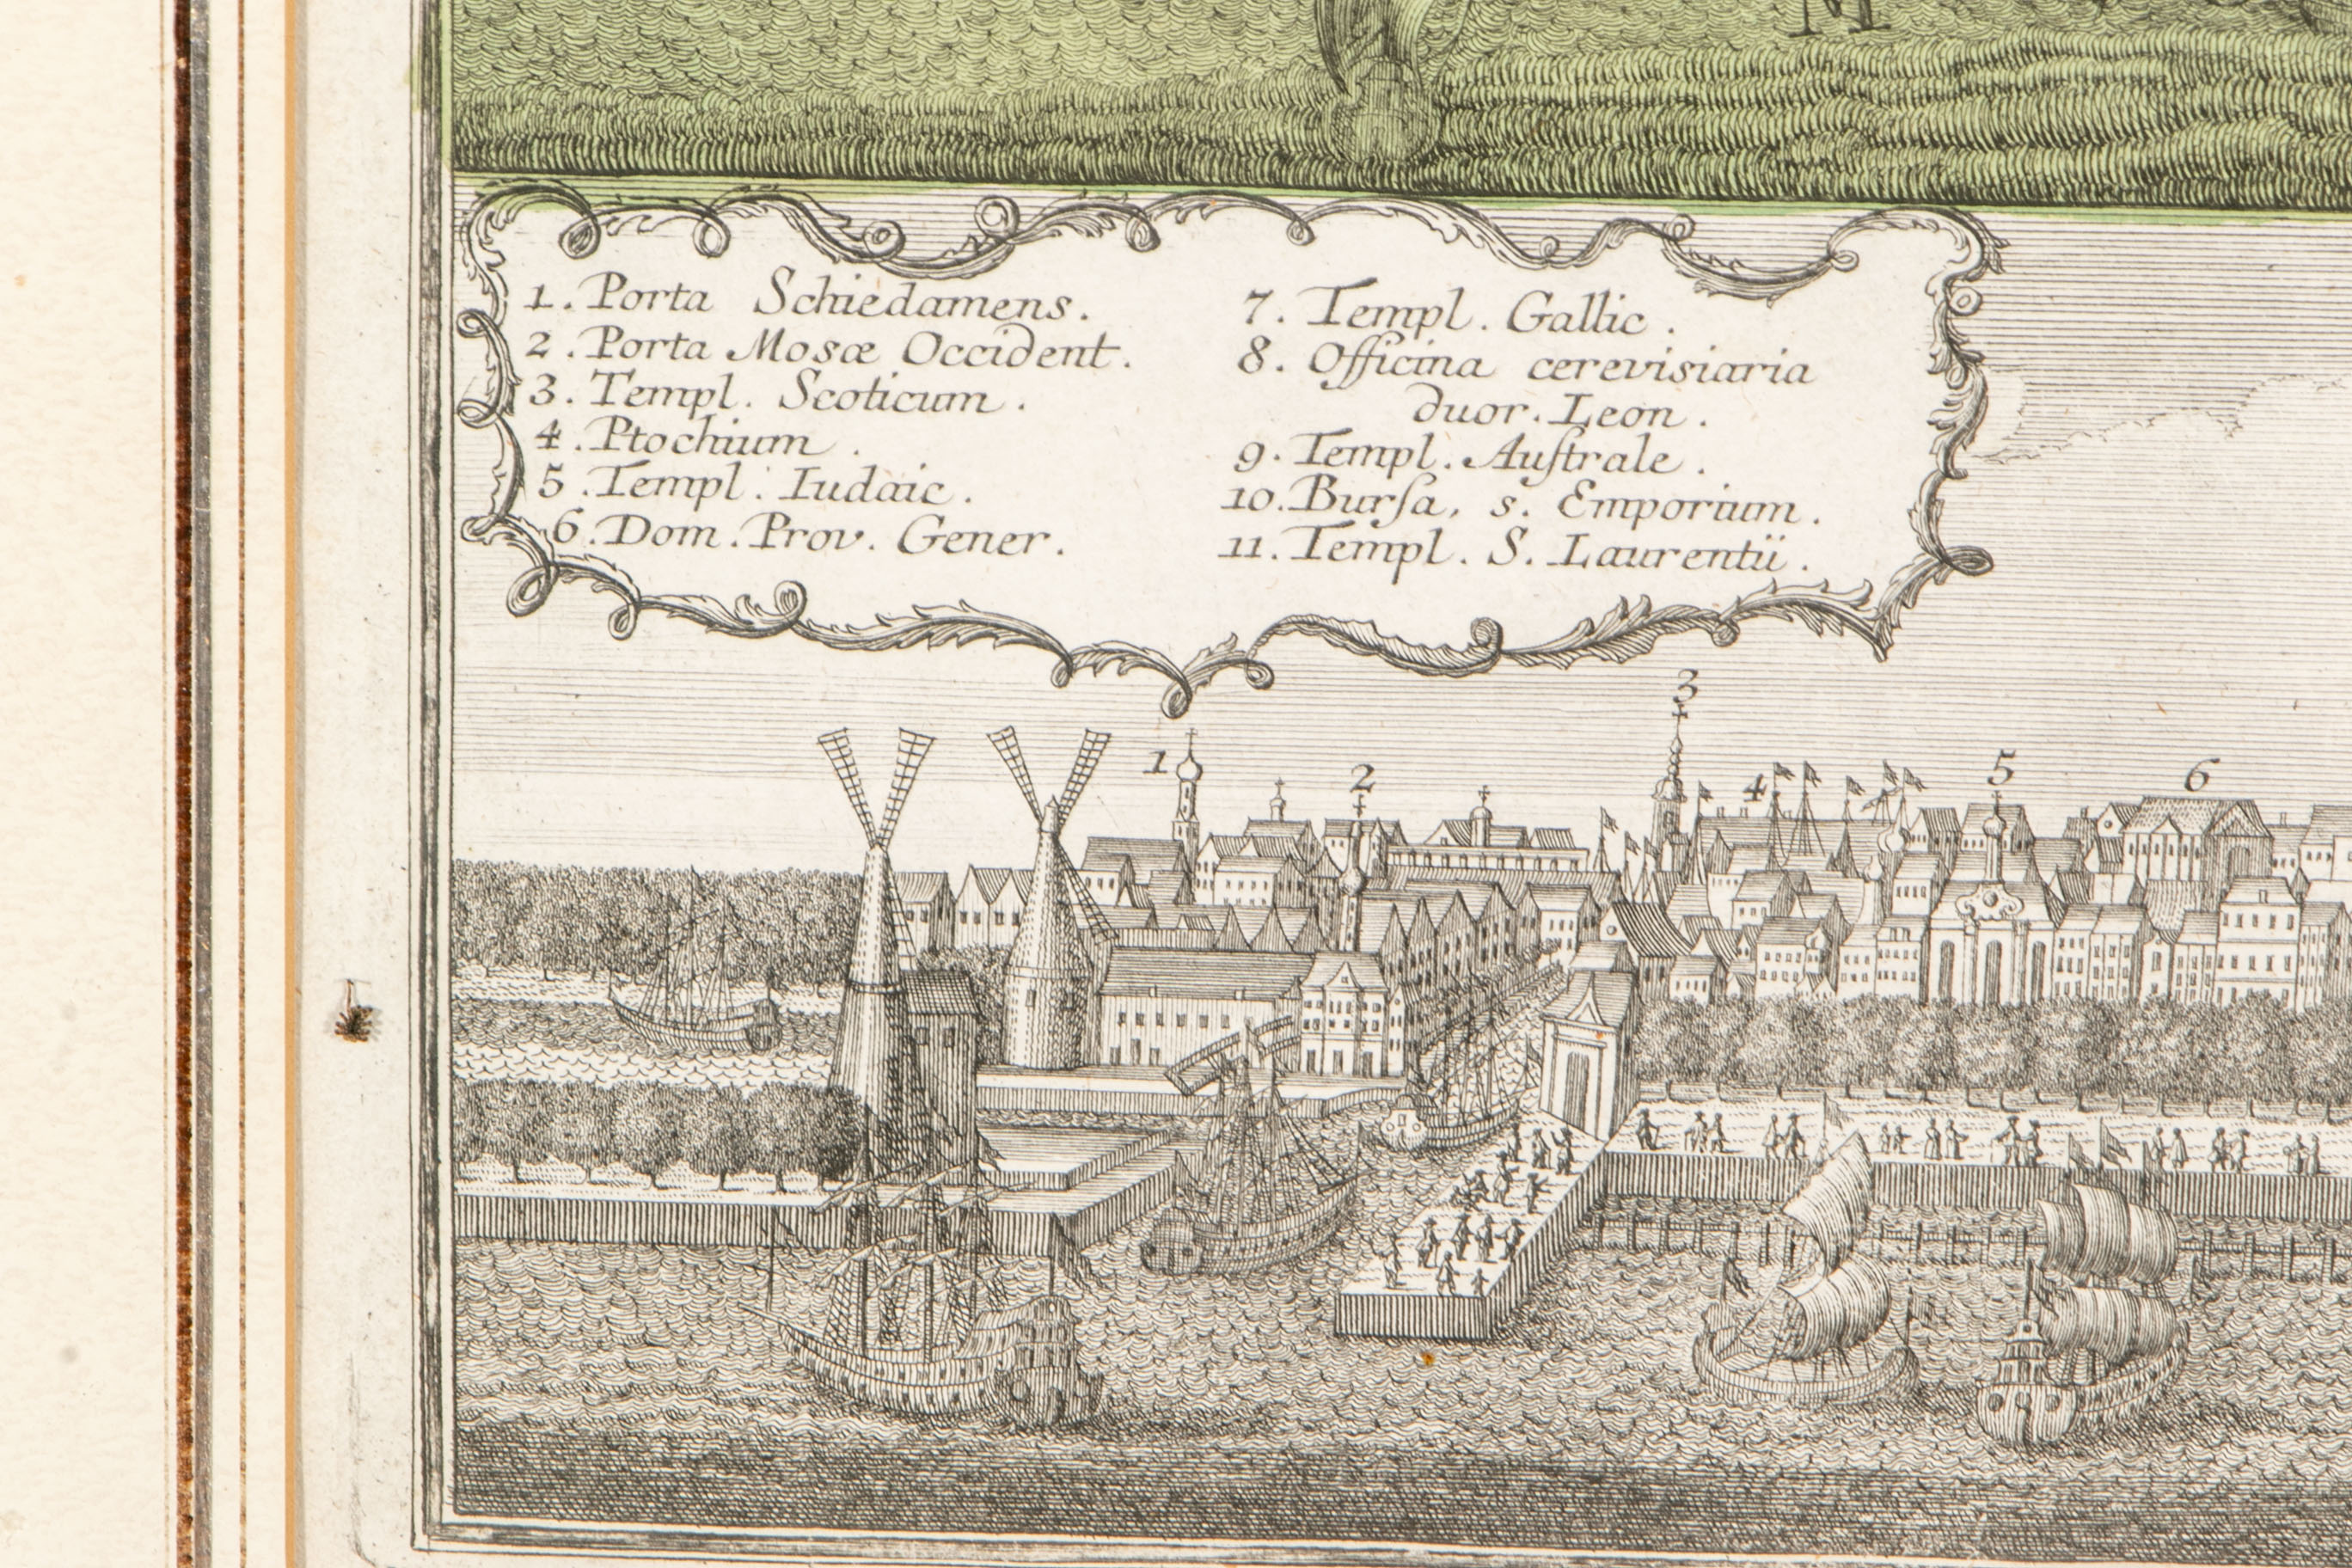 1. Porta Schiedamens.
2. Porta Mosæ Occident.
3. Templ. Scoticum.
4. Ptochium.
5. Templ. Iudaic.
6. Dom. Prov. Gener.
7. Templ. Gallic.
8. Officina cerevisiaria
duor. Leon.
9. Templ. Auſtrale.
10. Burſa, s. Emporium.
11. Templ. S. Laurentii.
3
1
2
4
5
6